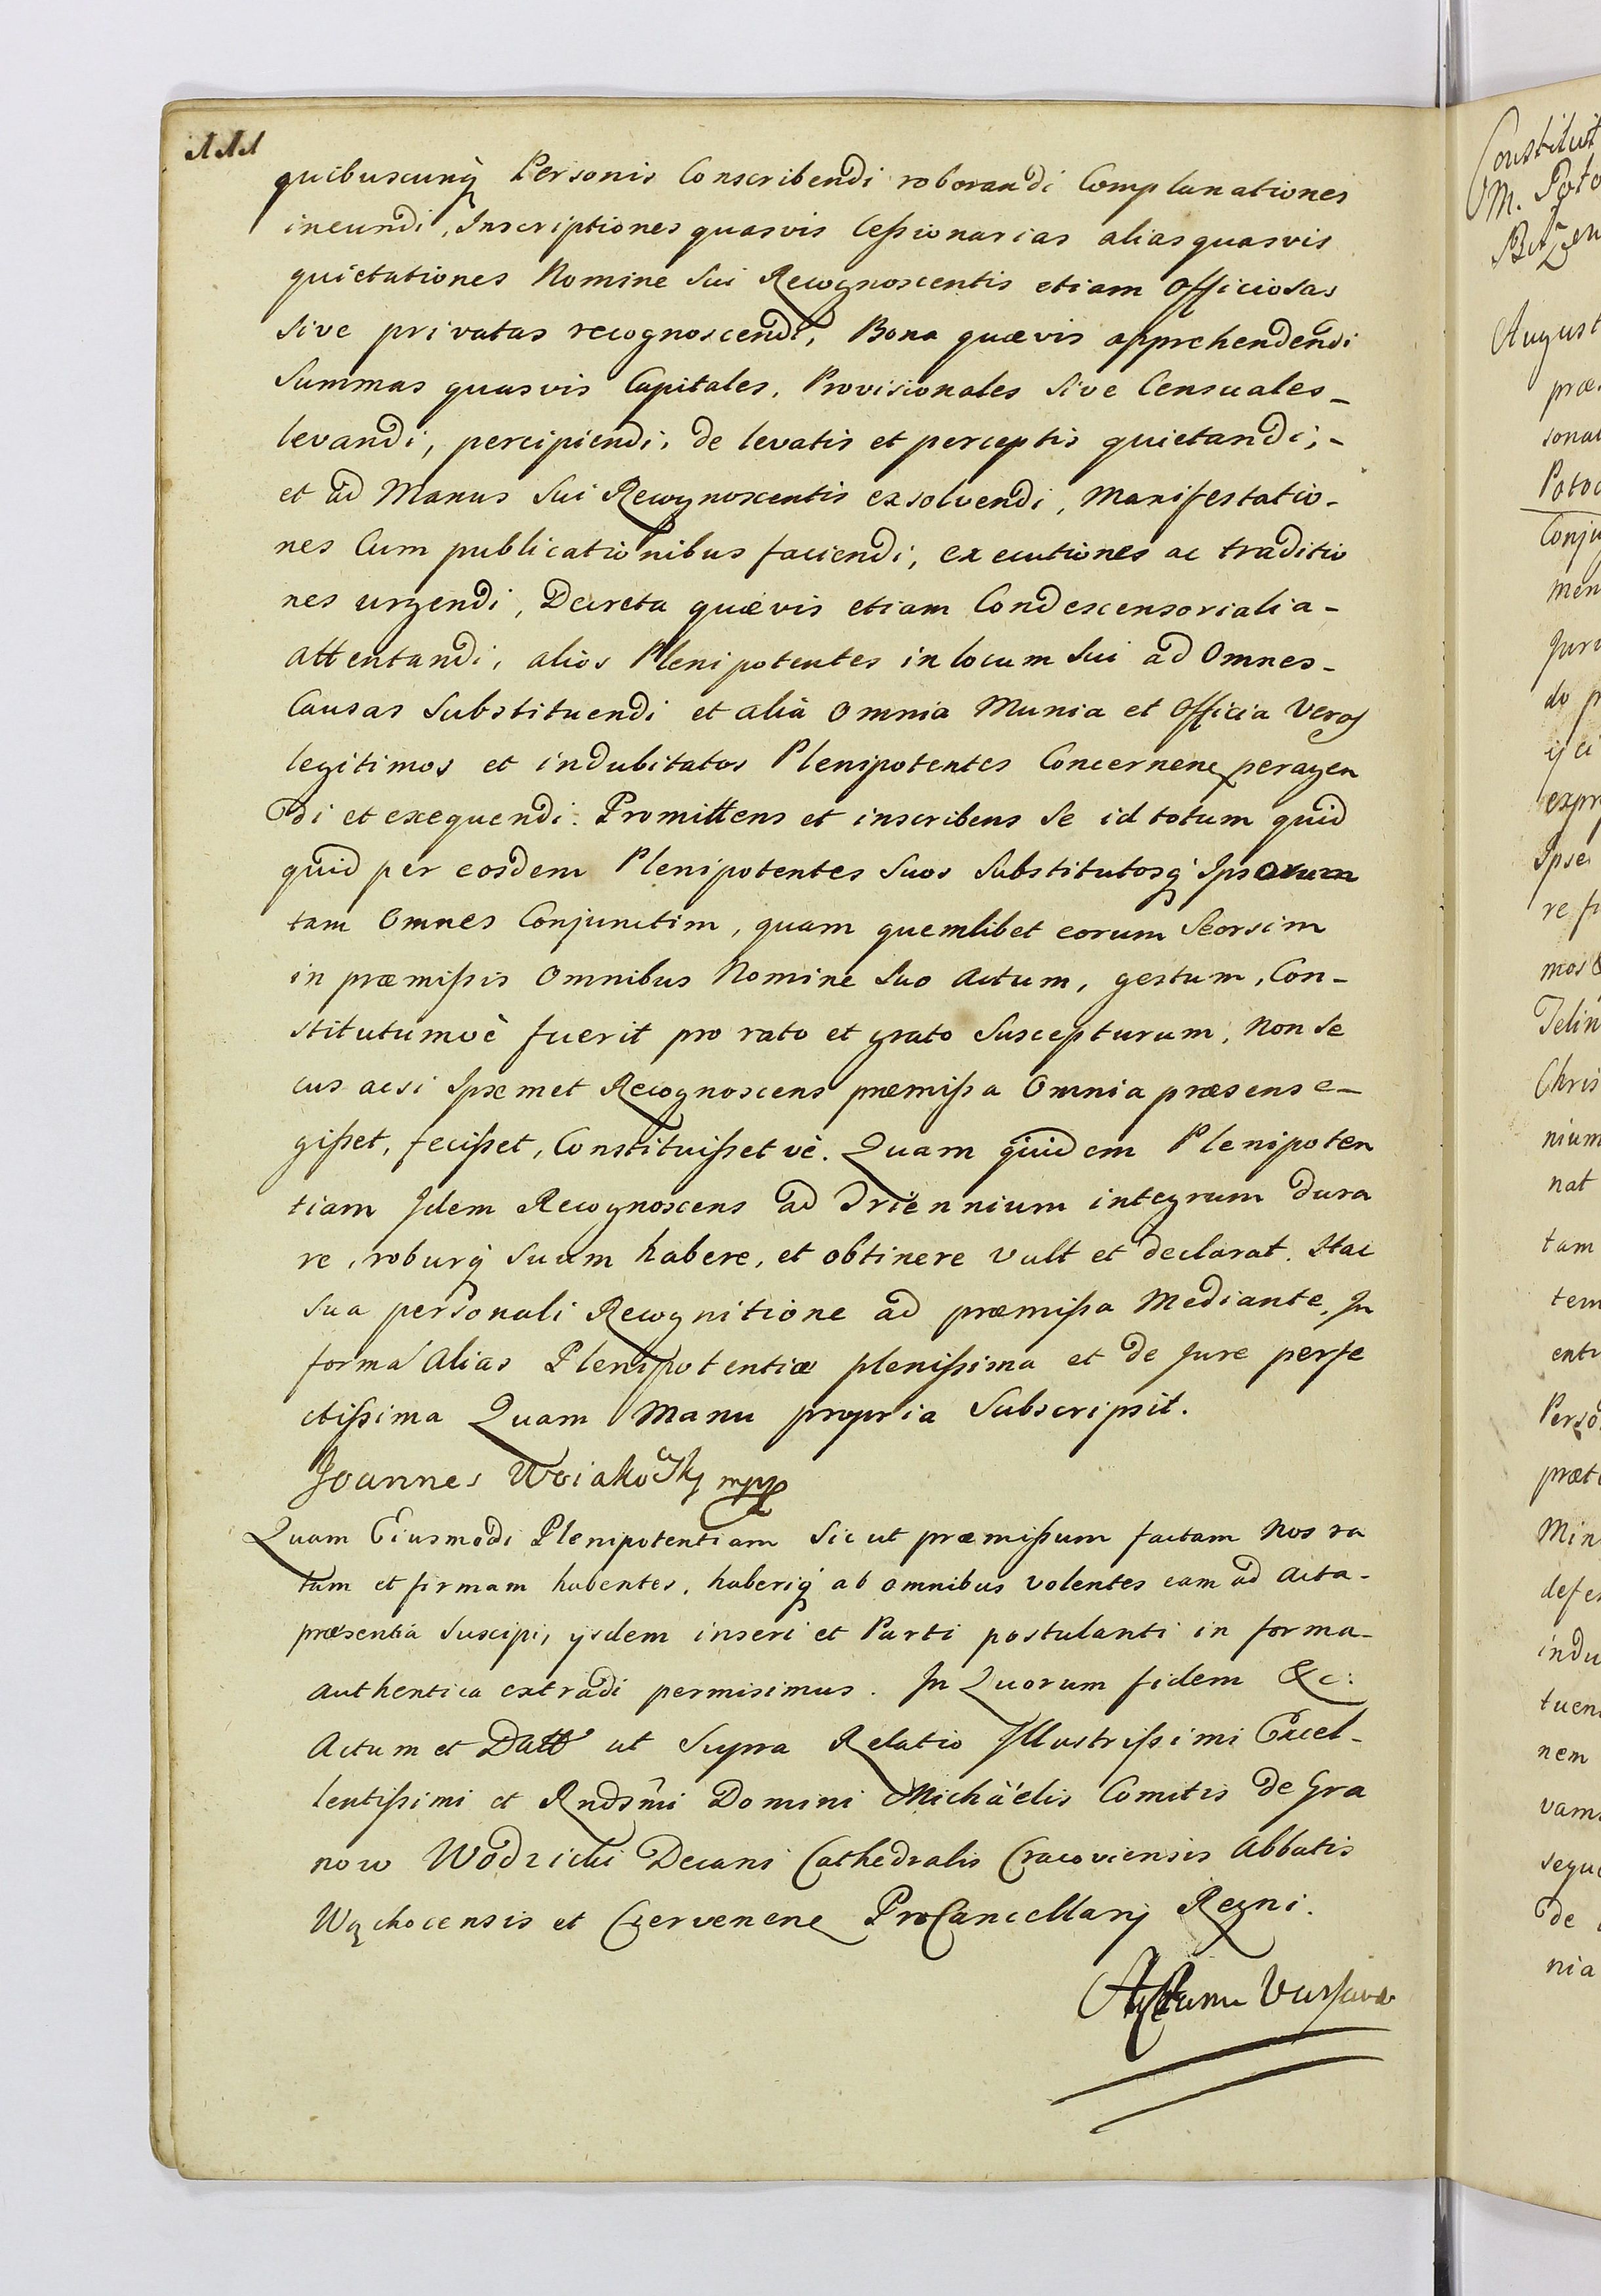 111
quibuscunq́ Personis Conscribendi roborandi Complanationes
ineundi, Inscriptiones quasvis Cessionarias alias quasvis
quietationes Nomine Sui Recognoscentis etiam Officiosas
Sive privatas recognoscendi, Bona quævis apprehendendi
Summas quasvis Capitales, Provisionales Sive Censuales_
levandi, percipiendi, de levatis et perceptis quietandi,_
et ad Manus Sui Recognoscentis exsolvendi, Manifestatio_
nes Cum publicationibus faciendi, executiones ac traditio
nes urgendi, Decreta quævis etiam Condescensorialia_
attentandi, alios Plenipotentes in locum Sui ad Omnes_
Causas Substituendi et alia Omnia Munia et Officia Veros
legitimos et indubitatos Plenipotentes Concernen peragen
di et exequendi. Promittens et inscribens Se id totum quid
quid per eosdem Plenipotentes Suos Substitutosq́ Ipsorum
tam Omnes Conjunctim, quam quemlibet eorum Seorsim
in præmissis Omnibus Nomine Suo Actum, gestum, Con_
stitutumvè fuerit pro rato et grato Suscepturum, Non Se
cus acsi Ipsemet Recognoscens præmissa Omnia præsens e_
gisset, fecisset, Constituisset vè. Quam quidem Plenipoten
tiam Idem Recognoscens ad Triennium integrum dura
re, roburq́ Suum habere, et obtinere Vult et declarat. Hac
Sua personali Recognitione ad præmissa Mediante, In
forma Alias Plenipotentiæ plenissima et de Jure perfe
ctissima Quam Manu propria Subscripsit.
Joannes Woiakowsky mpp
Quam Eiusmodi Plenipotentiam Sic ut præmissum factam Nos ra
tam et firmam habentes, haberiq́ ab omnibus volentes eam ad Acta_
præsentia Suscipi, ysdem inseri et Parti postulanti in forma_
authentica extradi permisimus. In Quorum fidem &c:
Actum et Datt ut Supra Relatio Illustrissimi Excel_
lentissimi et Rndsm̂i Domini Michäelis Comitis de Gra
now Wodzicki Decani Cathedralis Cracoviensis Abbatis
Wąchocensis et Czervenen ProCancellarij Regni.
Constituit
M. Poto
August
præ
sona
Potoc
Conju
men
Juri
do p
expr
Ipse
re f
mos
Chris
nium
nat
tam
tem
Perso
præt
Min
defe
indu
tuen
nem
vam
sequ
de
nia